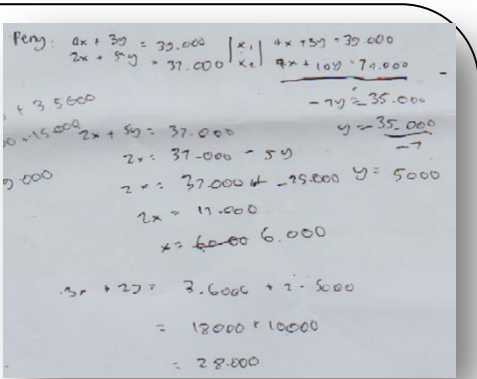 Peny: 4x + 3y = 39.000 | x1 | 4x + 3y = 39.000
2x + 5y = 37.000 | x2 | 4x + 10y = 74.000 -
-7y = 35.000
y = 35.000
-7
y = 5000
+ 3.5000
+15.000
9.000
2x + 5y = 37.000
2x = 37.000 - 5y
2x = 37.000 - 25.000
2x = 12.000
x = 6.000
3x + 2y = 3.6000 + 2. 5000
= 18000 + 10000
= 28.000